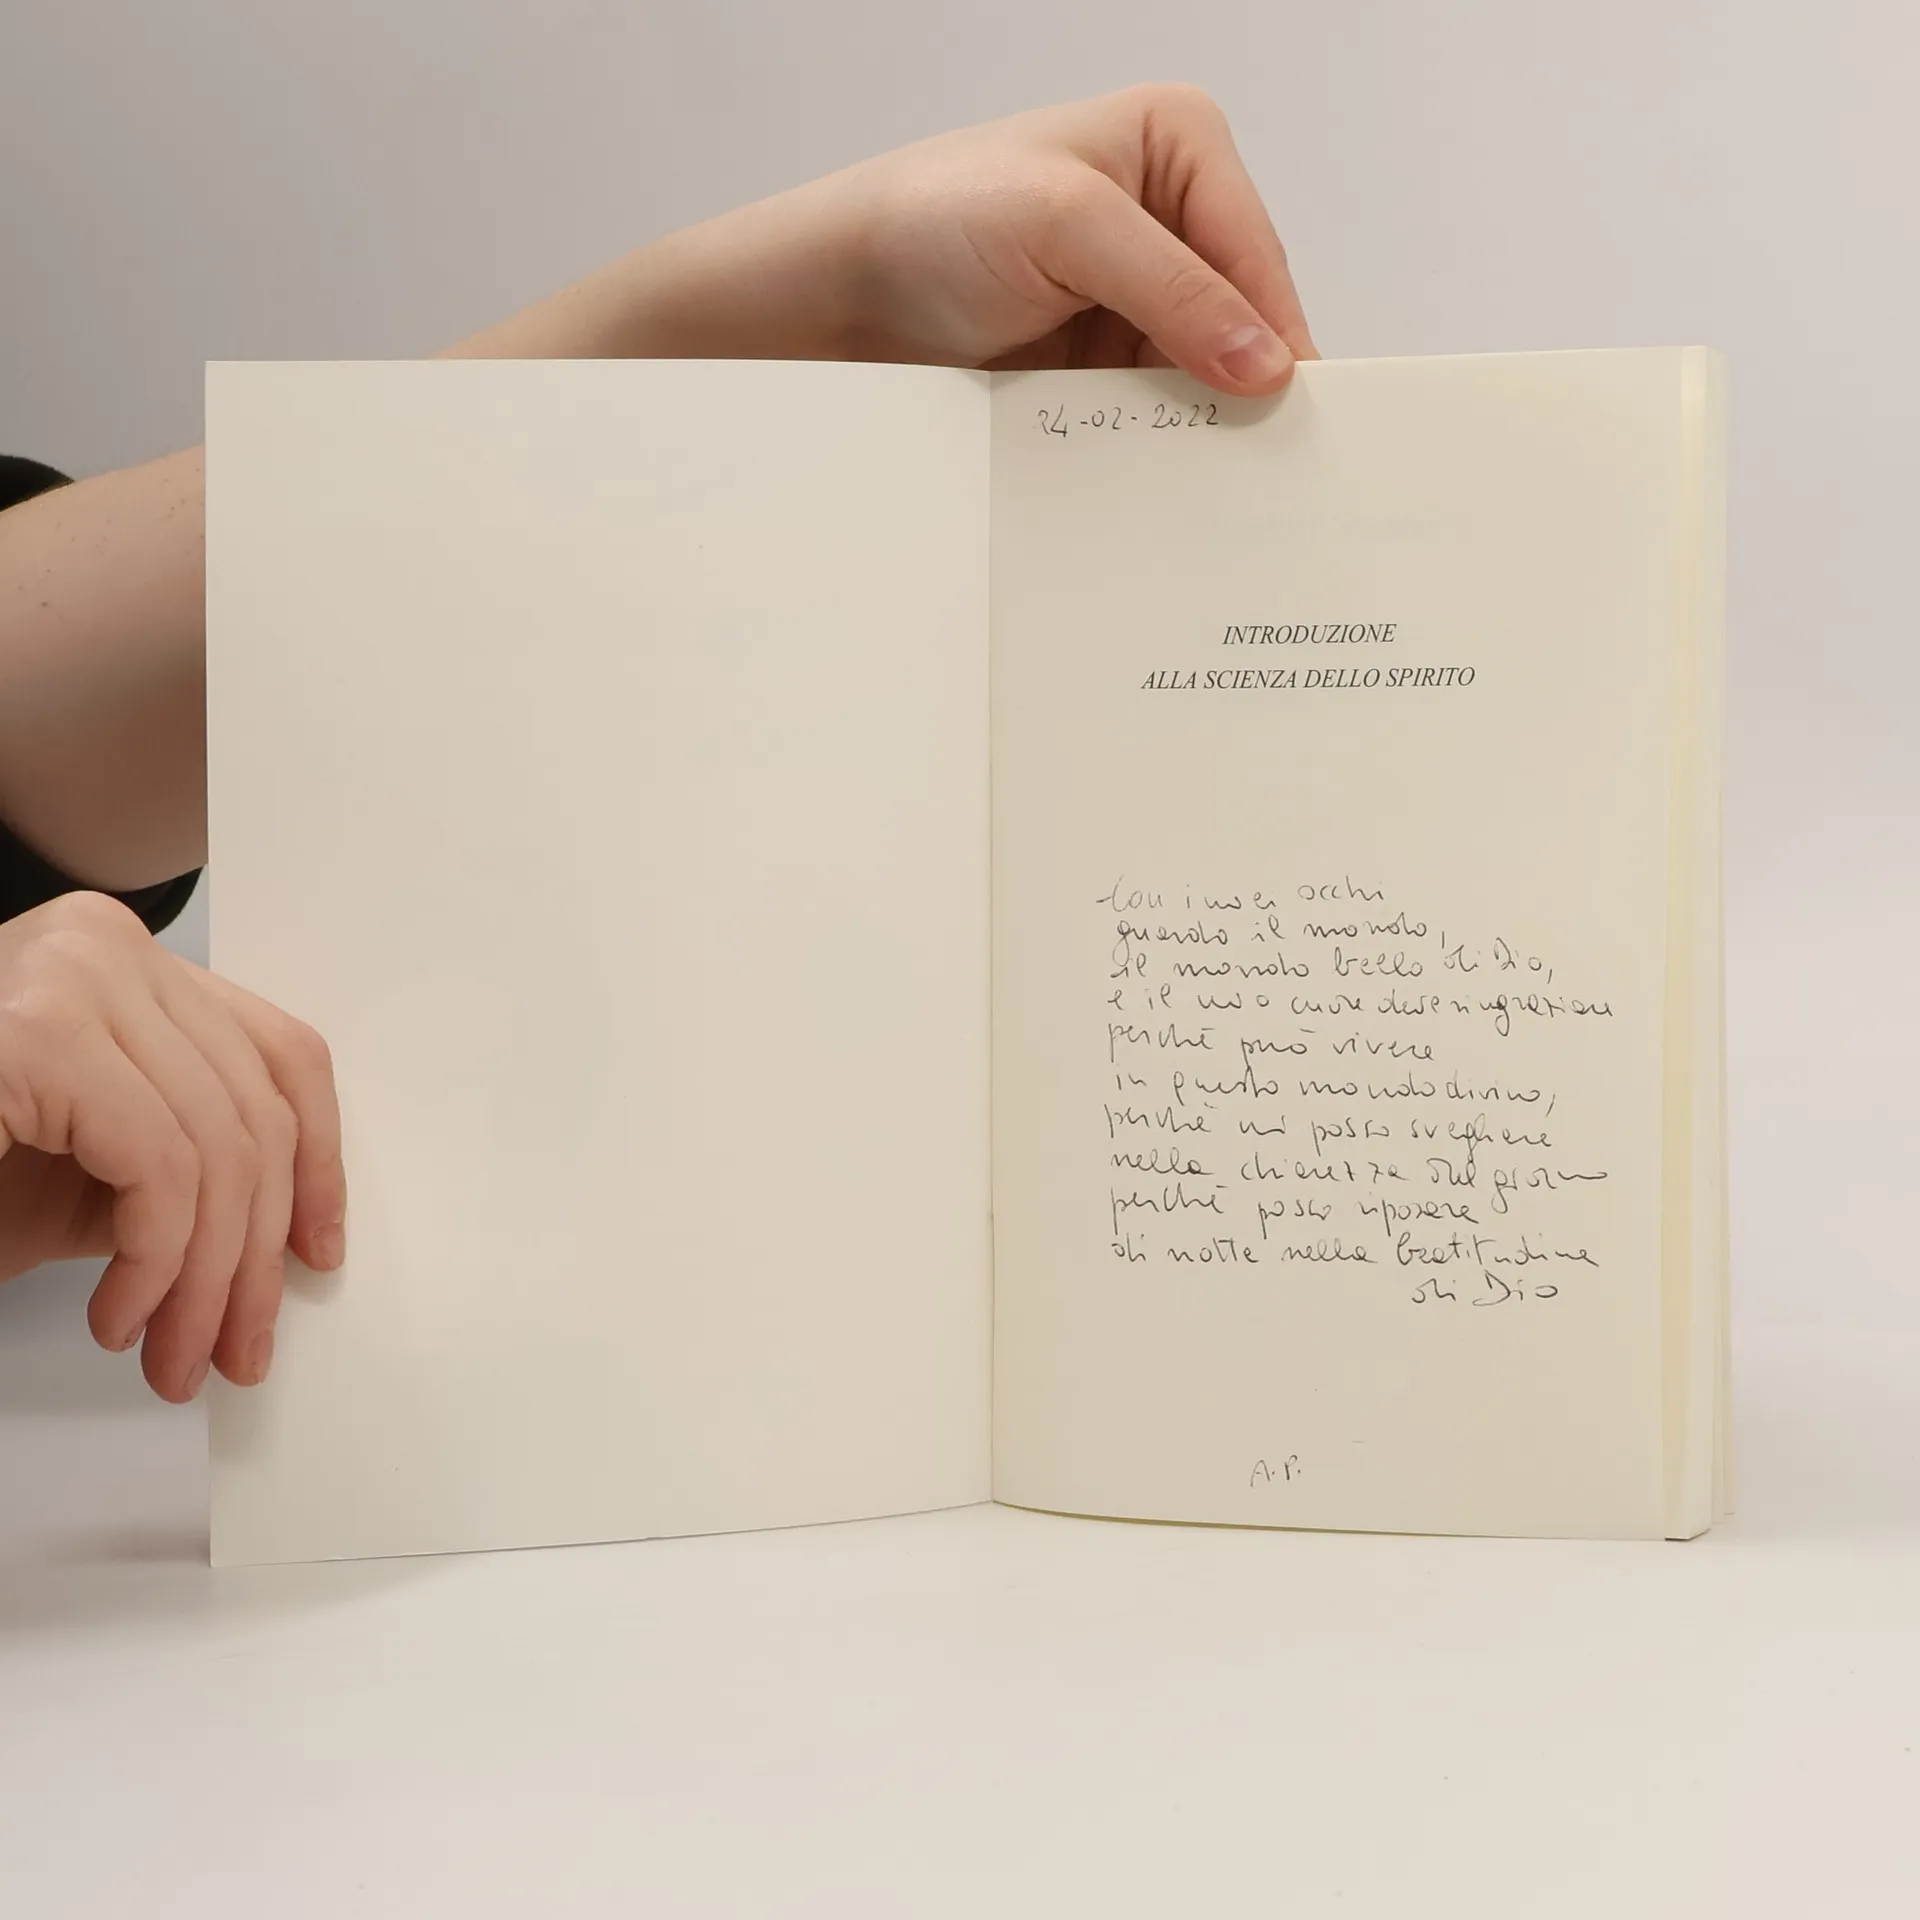 24-02-2022
INTRODUZIONE
ALLA SCIENZA DELLO SPIRITO
Con i miei occhi
guardo il mondo,
il mondo bello di Dio,
e il mio cuore deve ringraziare
perchè può vivere
in questo mondo divino,
perchè mi posso svegliare
nella chiarezza del giorno
perchè posso riposare
di notte nella beatitudine
di Dio
A.P.